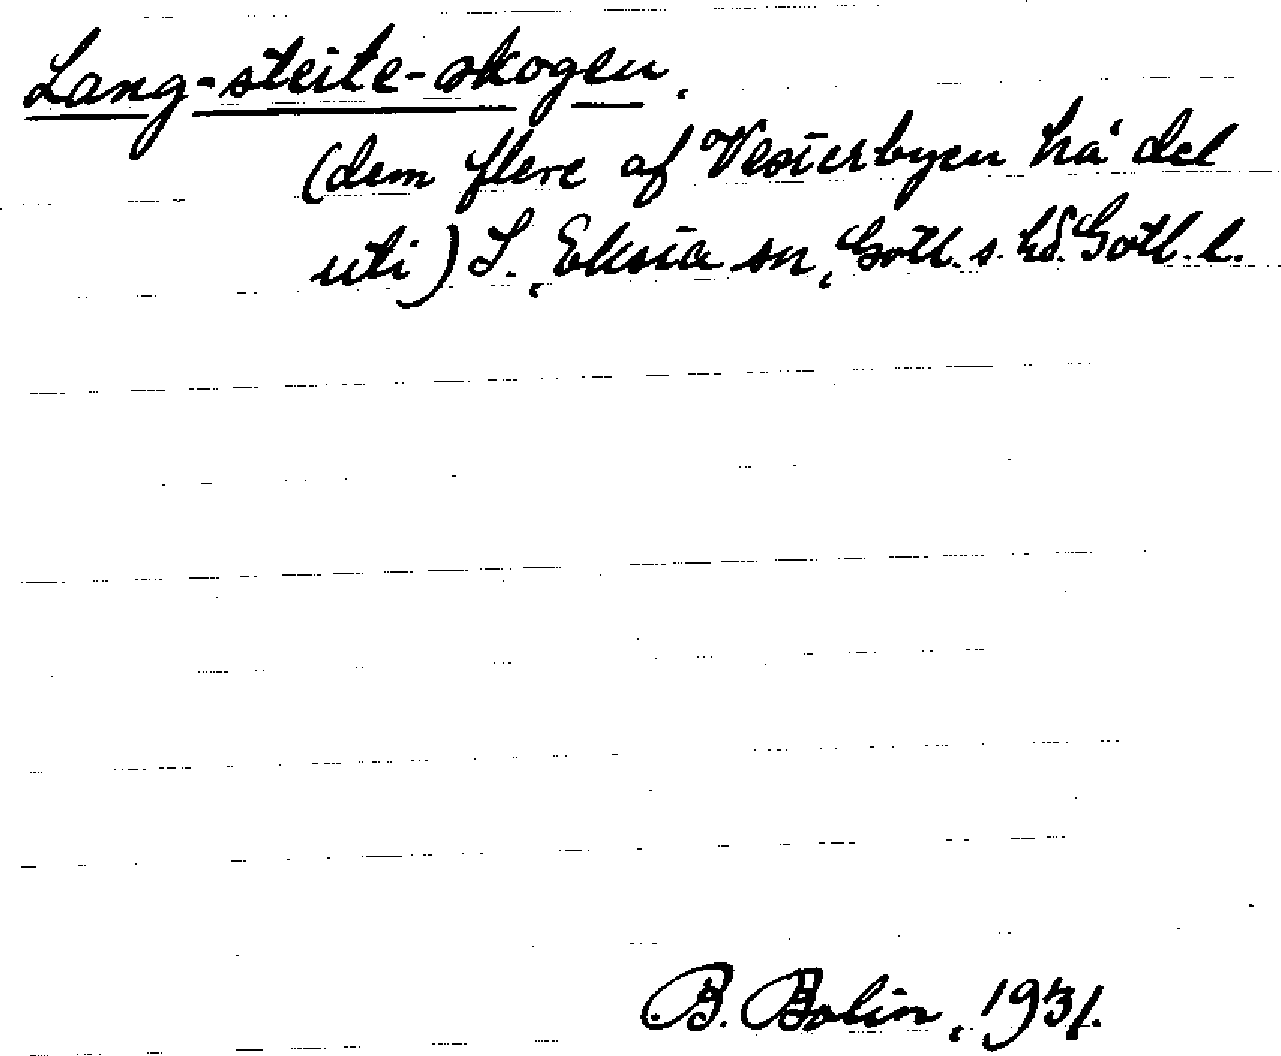 Lang-steite-skogen.
(dem flere af Vesterbyen hå del
uti) S. Eksta sn, Gotl. s. hd. Gotl. l.
B. Bolin, 1931.